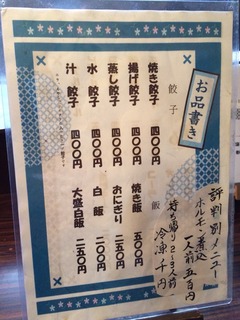 お品書き
餃子
焼き餃子 四〇〇円
揚げ餃子 四〇〇円
蒸し餃子 四〇〇円
水餃子 四〇〇円
汁餃子 四〇〇円
飯
焼き飯 五〇〇円
おにぎり 二五〇円
白飯 二〇〇円
大盛白飯 二五〇円
評判別メニュー
ホルモン煮込
一人前五百円
持ち帰り2〜3人前
冷凍千円